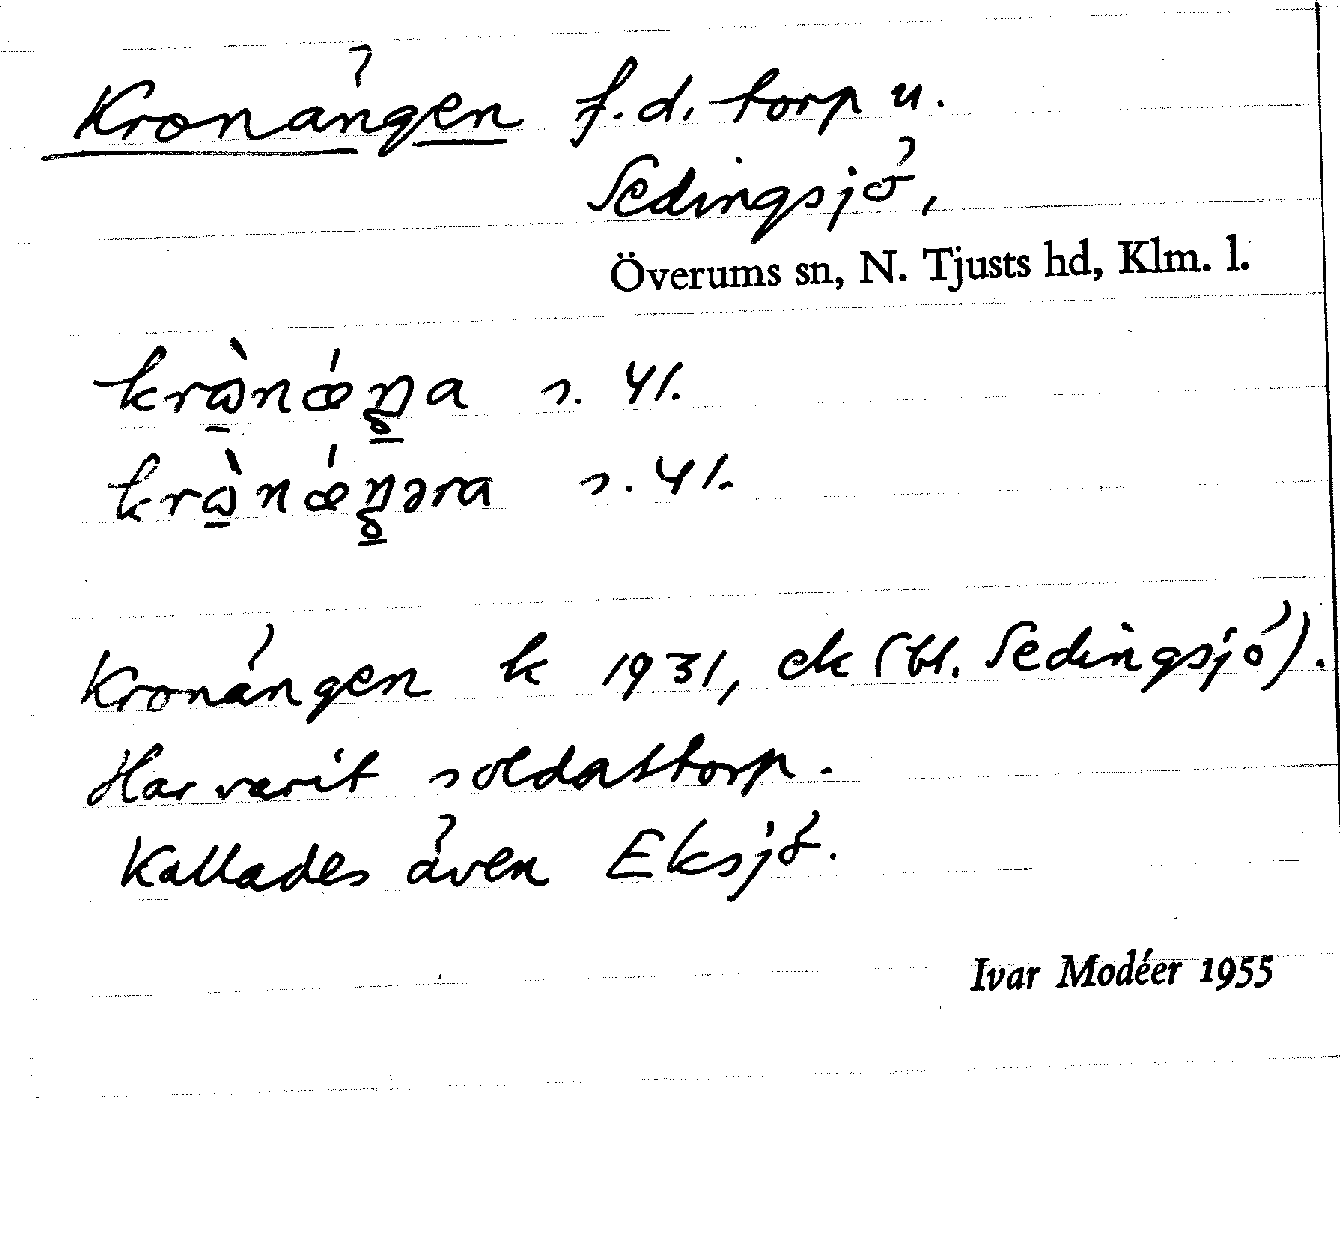 Kronängen f.d. torp u.
Sedingsjö,
Överums sn, N. Tjusts hd, Klm. l.
krὼnǽŋa s. 41.
krὼnǽŋəra s. 41.
Kronängen k 1931, ek (bl. Sedingsjö).
Har varit soldattorp.
Kallades även Eksjö.
Ivar Modéer 1955